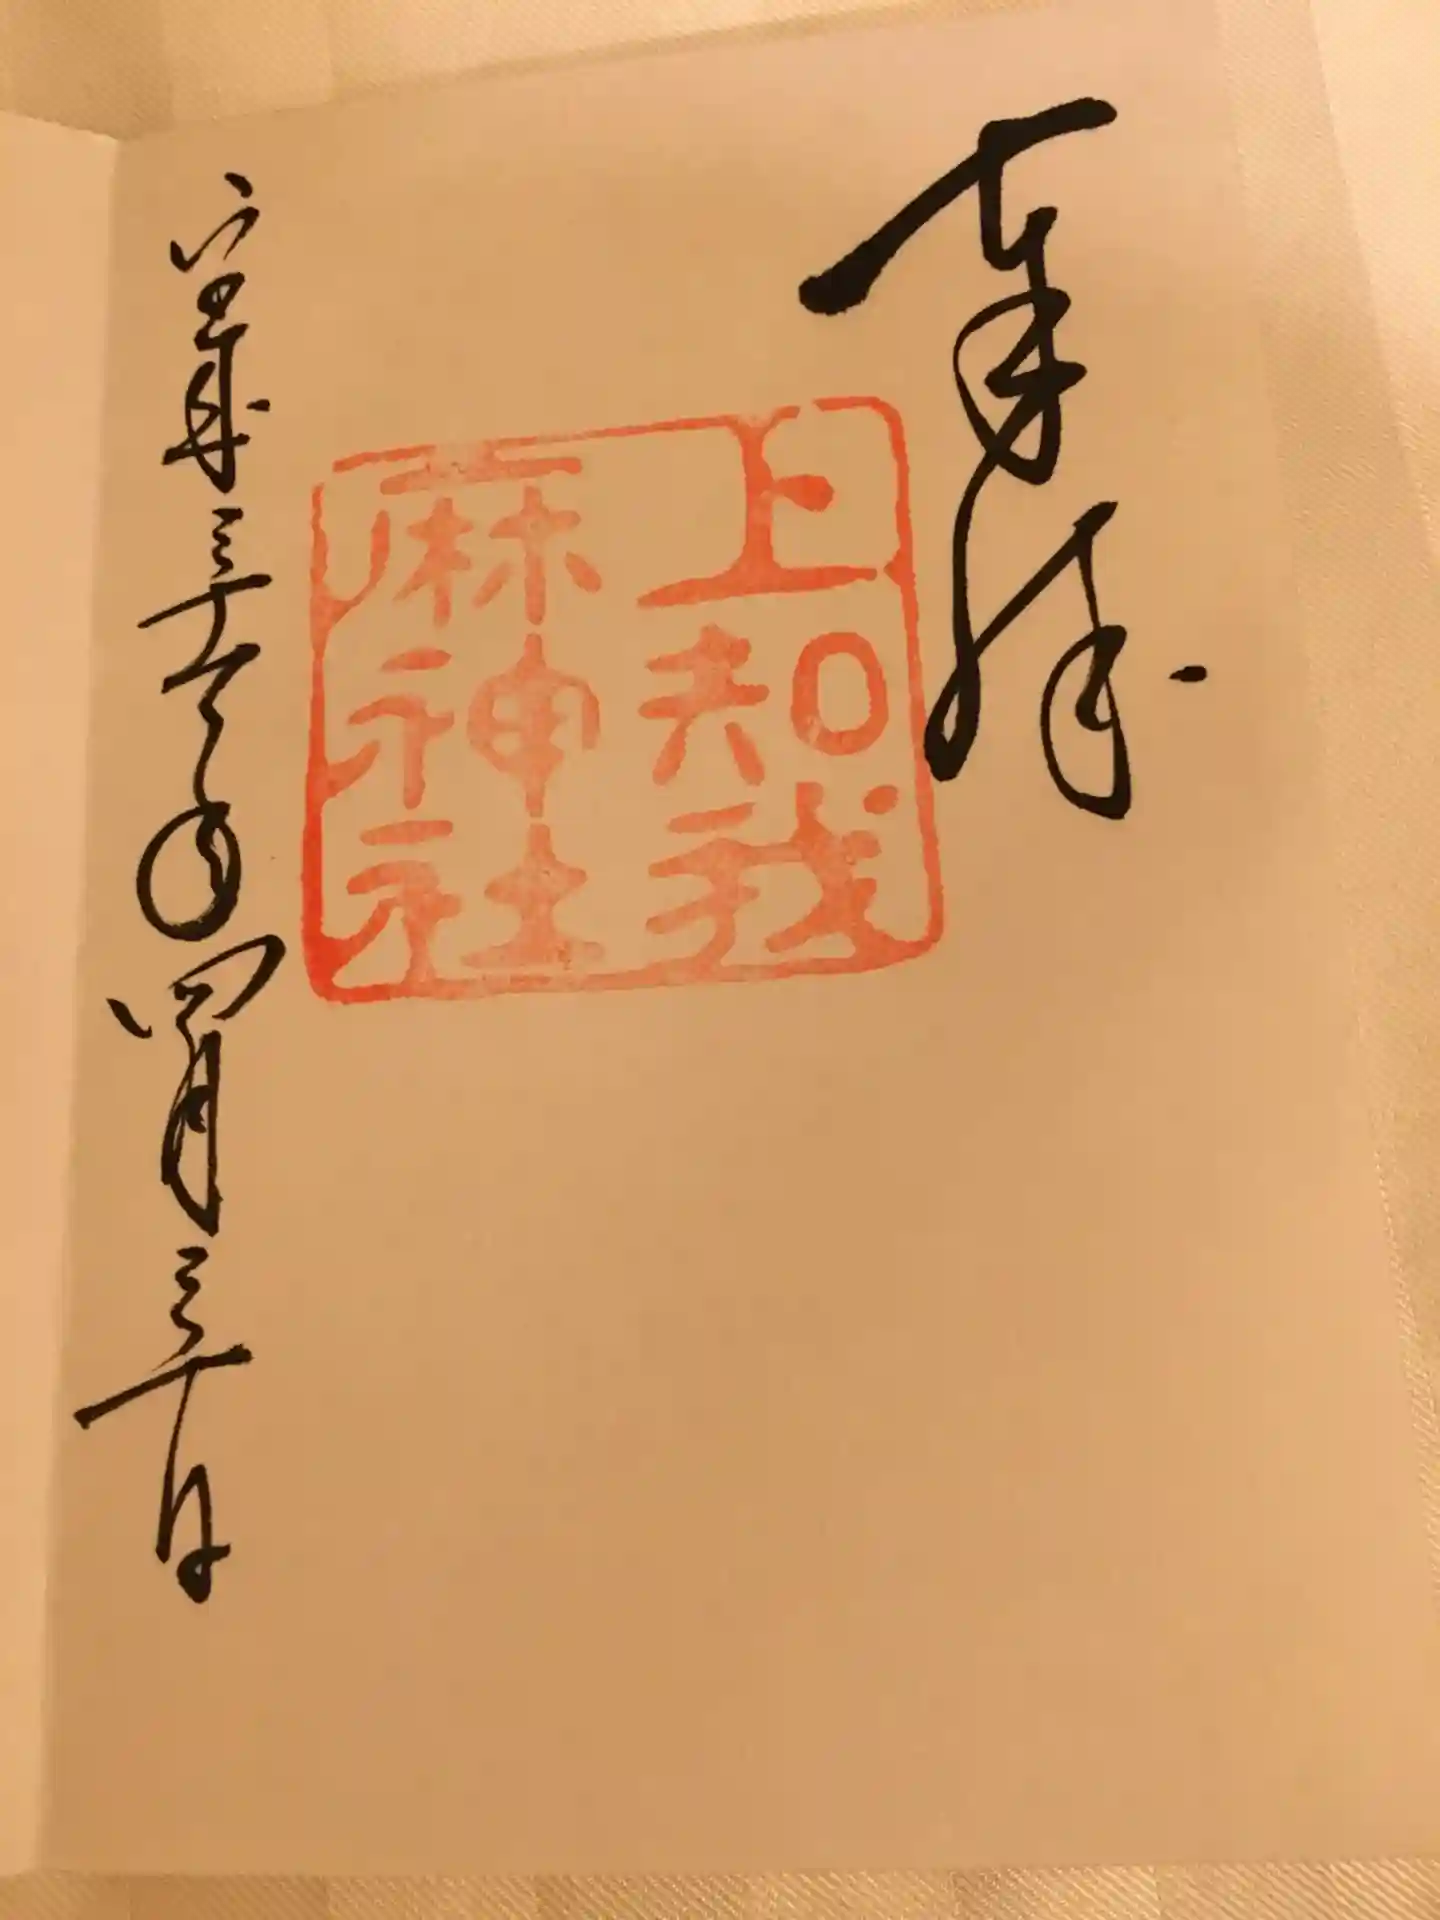 奉拝
上知我
麻神社
平成三十一年四月三十日